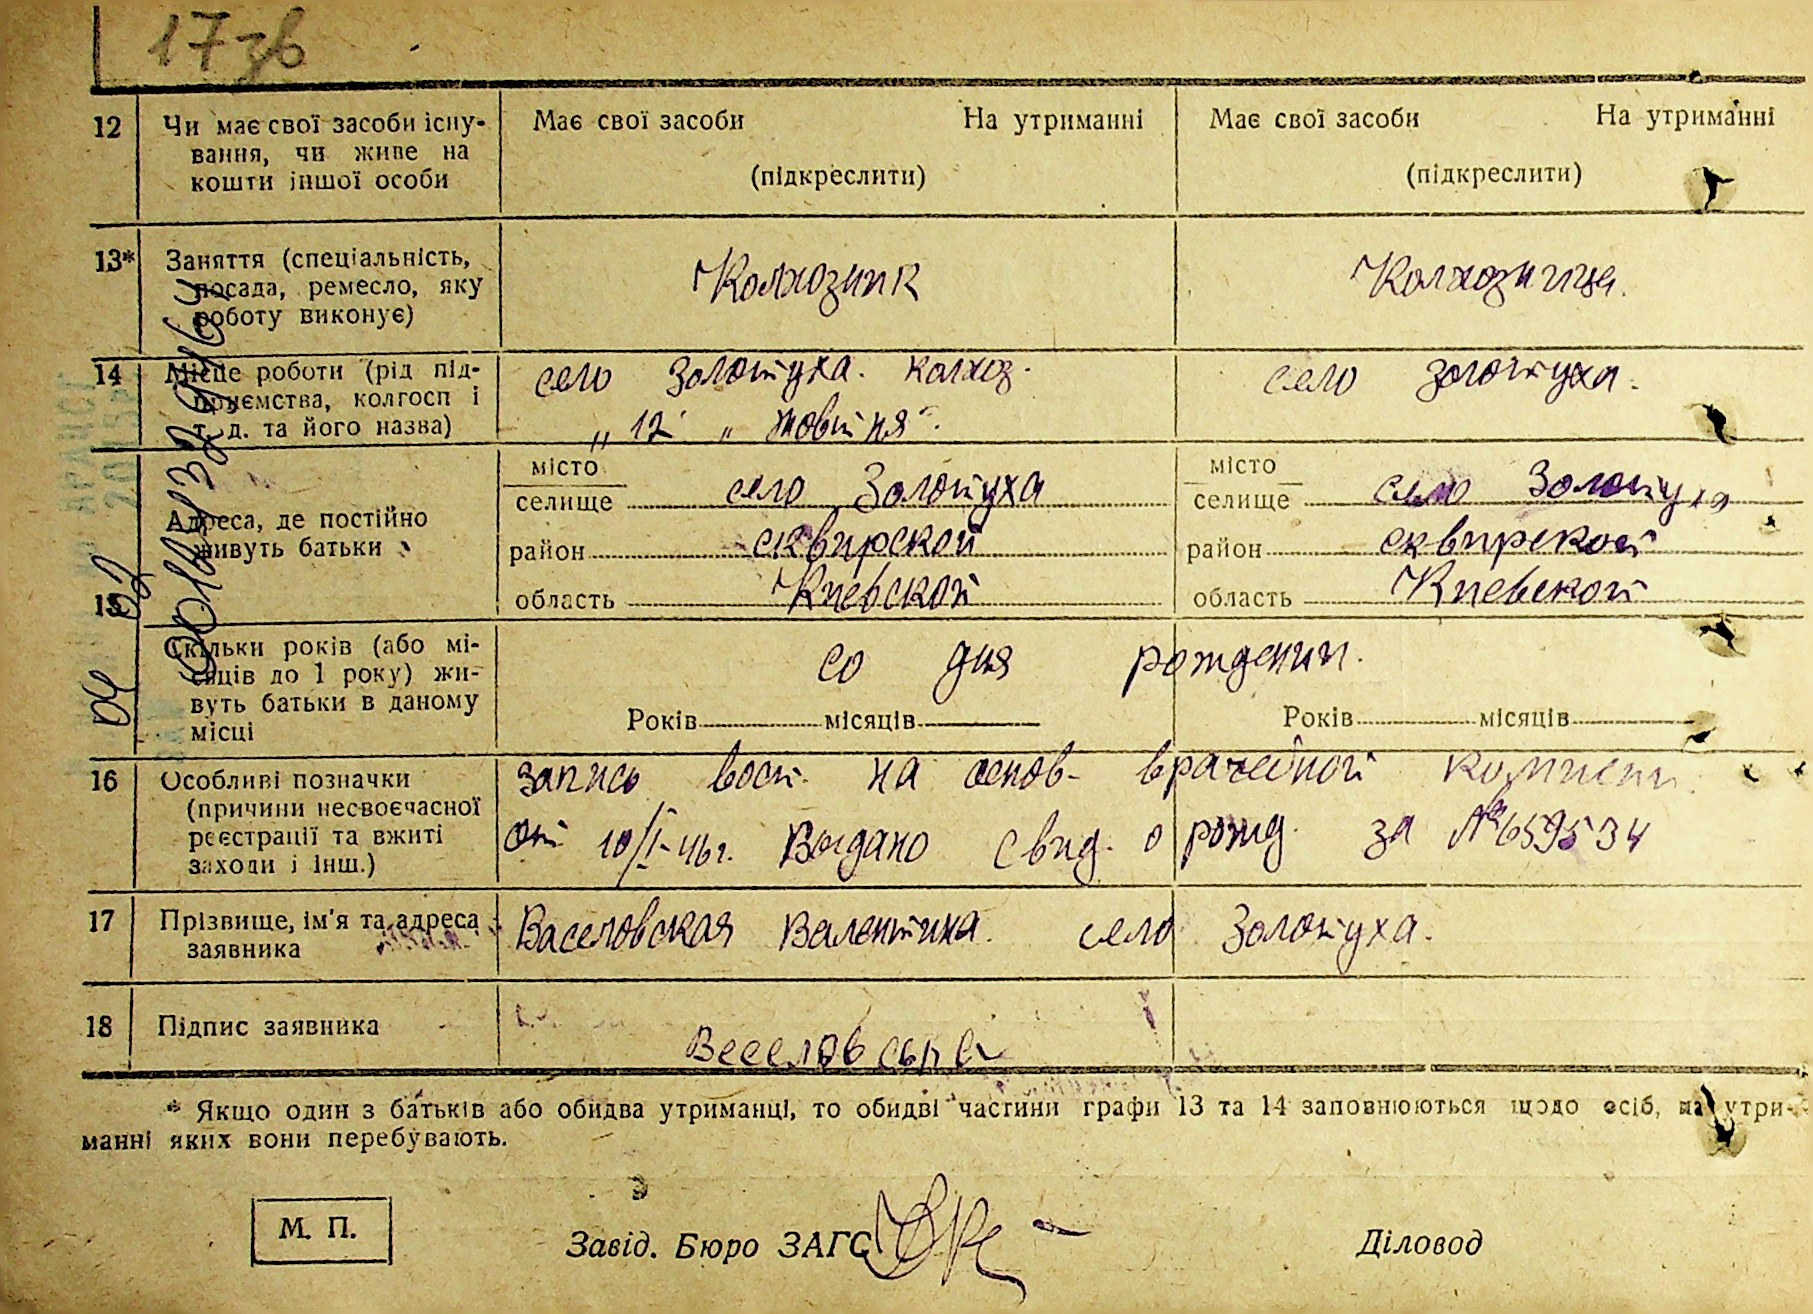 17зв
12 Чи має свої засоби існу- Має свої засоби На утриманні Має свої засоби На утриманні
вання, чи живе на
кошти іншої особи (підкреслити) (підкреслити)
13* Заняття (спеціальність,
посада, ремесло, яку Колхозник Колхозница.
роботу виконує)
14 Місце роботи (рід під- село Золотуха. колхоз. село Золотуха.
приємства, колгосп і
т. д. та його назва) „ 12 " жовтня".
15 Адреса, де постійно живуть батьки
місто
селище село Золотуха
район сквирской
область Киевской
місто
селище село Золотуха
район сквирской
область Киевской
Скільки років (або мі- со дня рождении.
сяців до 1 року) жи-
вуть батьки в даному Років місяців Років місяців
місці
16 Особливі позначки запись вост. на основ- врачебной комисии
(причини несвоєчасної
реєстрації та вжиті от 10/I-46г. Выдано свид. о рожд. за № 659534
заходи і інш.)
17 Прізвище, ім'я та адреса Васеловская Валентина. село Золотуха.
заявника
18 Підпис заявника Веселовська
* Якщо один з батьків або обидва утриманці, то обидві частини графи 13 та 14 заповнюються щодо осіб, на утри-
манні яких вони перебувають.
М. П. Завід. Бюро ЗАГС Діловод